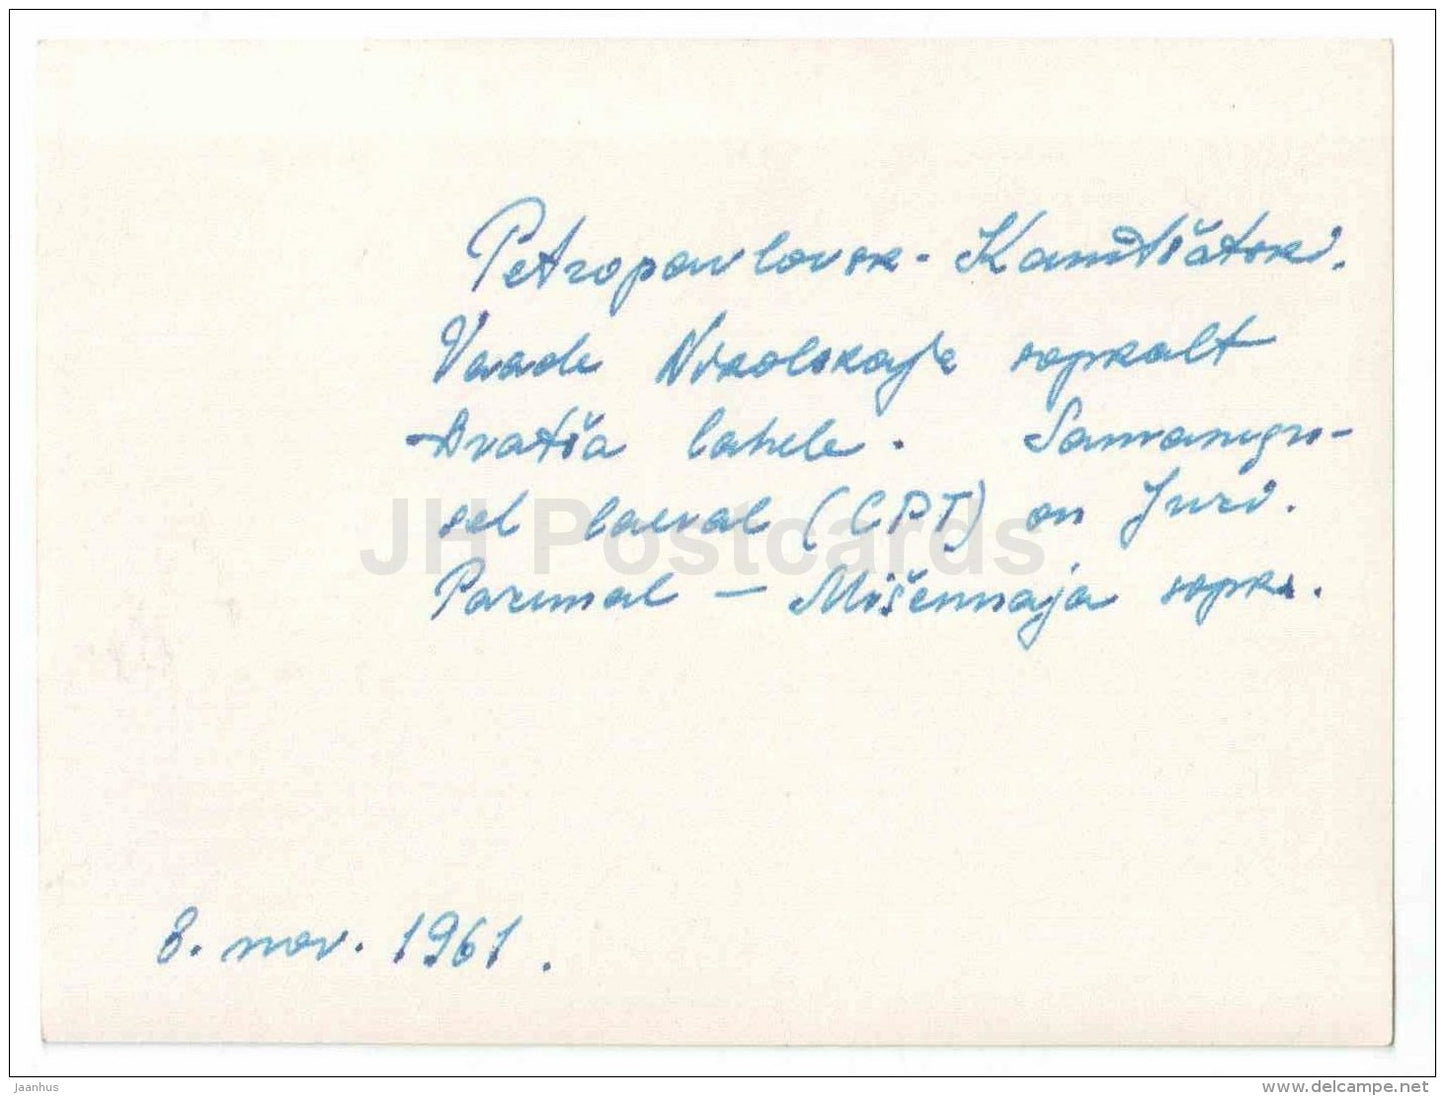 Petropavlovsk-Kamtšatski.
Vaade Nikolskaja sopkalt
Avatša lahele. Samasugu-
sel laeval (CPT) on Juri.
Paremal — Mišennaja sopka.
8. nov. 1961.
JH Postcards
jaanhus
www.delcampe.net